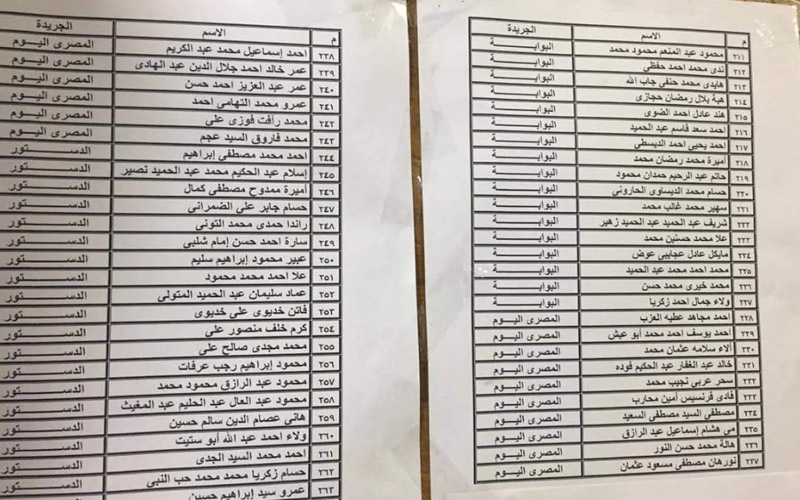 م الاسم الجريدة
٢١١ محمود عبد المنعم محمود محمد البوابة
٢١٢ ندى محمد احمد حفظى البوابة
٢١٣ هايدى محمد حنفى جاب الله البوابة
٢١٤ هبة بلال رمضان حجازى البوابة
٢١٥ هند عادل احمد الضوى البوابة
٢١٦ احمد سعد قاسم عبد الحميد البوابة
٢١٧ احمد يحيى احمد الديسطى البوابة
٢١٨ أميرة محمد رمضان محمد البوابة
٢١٩ حاتم عبد الرحيم حمدان محمود البوابة
٢٢٠ حسام محمد الديساوى الحارونى البوابة
٢٢١ سهير محمد غالب محمد البوابة
٢٢٢ شريف عبد الحميد عبد الحميد زهير البوابة
٢٢٣ علا محمد حسنين محمد البوابة
٢٢٤ مايكل عادل عجايبى عوض البوابة
٢٢٥ محمد احمد محمد عبد الحميد البوابة
٢٢٦ محمد خيرى محمد حسن البوابة
٢٢٧ ولاء جمال احمد زكريا البوابة
٢٢٨ احمد مجاهد عطيه العزب المصرى اليوم
٢٢٩ احمد يوسف احمد محمد أبو عيش المصرى اليوم
٢٣٠ آلاء سلامه عثمان محمد المصرى اليوم
٢٣١ خالد عبد الغفار عبد الحكيم فوده المصرى اليوم
٢٣٢ سحر عربى نجيب محمد المصرى اليوم
٢٣٣ فادى فرنسيس أمين محارب المصرى اليوم
٢٣٤ مصطفى السيد مصطفى السعيد المصرى اليوم
٢٣٥ مي هشام إسماعيل عبد الرازق المصرى اليوم
٢٣٦ هالة محمد حسن النور المصرى اليوم
٢٣٧ نورهان مصطفى مسعود عثمان المصرى اليوم
م الاسم الجريدة
٢٣٨ احمد إسماعيل محمد عبد الكريم المصرى اليوم
٢٣٩ عمر خالد احمد جلال الدين عبد الهادى المصرى اليوم
٢٤٠ عمر عبد العزيز احمد حسن المصرى اليوم
٢٤١ عمرو محمد التهامى احمد المصرى اليوم
٢٤٢ محمد رأفت فوزى على المصرى اليوم
٢٤٣ محمد فاروق السيد عجم المصرى اليوم
٢٤٤ احمد محمد مصطفى إبراهيم الدستور
٢٤٥ إسلام عبد الحكيم محمد عبد الحميد نصير الدستور
٢٤٦ أميرة ممدوح مصطفى كمال الدستور
٢٤٧ حسام جابر على الضمرانى الدستور
٢٤٨ راندا حمدى محمد التونى الدستور
٢٤٩ سارة احمد حسن إمام شلبى الدستور
٢٥٠ عبير محمود إبراهيم سليم الدستور
٢٥١ علا احمد محمد محمود الدستور
٢٥٢ عماد سليمان عبد الحميد المتولى الدستور
٢٥٣ فاتن خديوى على خديوى الدستور
٢٥٤ كرم خلف منصور على الدستور
٢٥٥ محمد مجدى صالح على الدستور
٢٥٦ محمود إبراهيم رجب عرفات الدستور
٢٥٧ محمود عبد الرازق محمود محمد الدستور
٢٥٨ محمود عبد العال عبد الحليم عبد المغيث الدستور
٢٥٩ هانى عصام الدين سالم حسين الدستور
٢٦٠ ولاء احمد عبد الله أبو ستيت الدستور
٢٦١ احمد محمد السيد الجدى الدستور
٢٦٢ حسام زكريا محمد محمد حب النبى الدستور
٢٦٣ عمرو سيد إبراهيم حسين